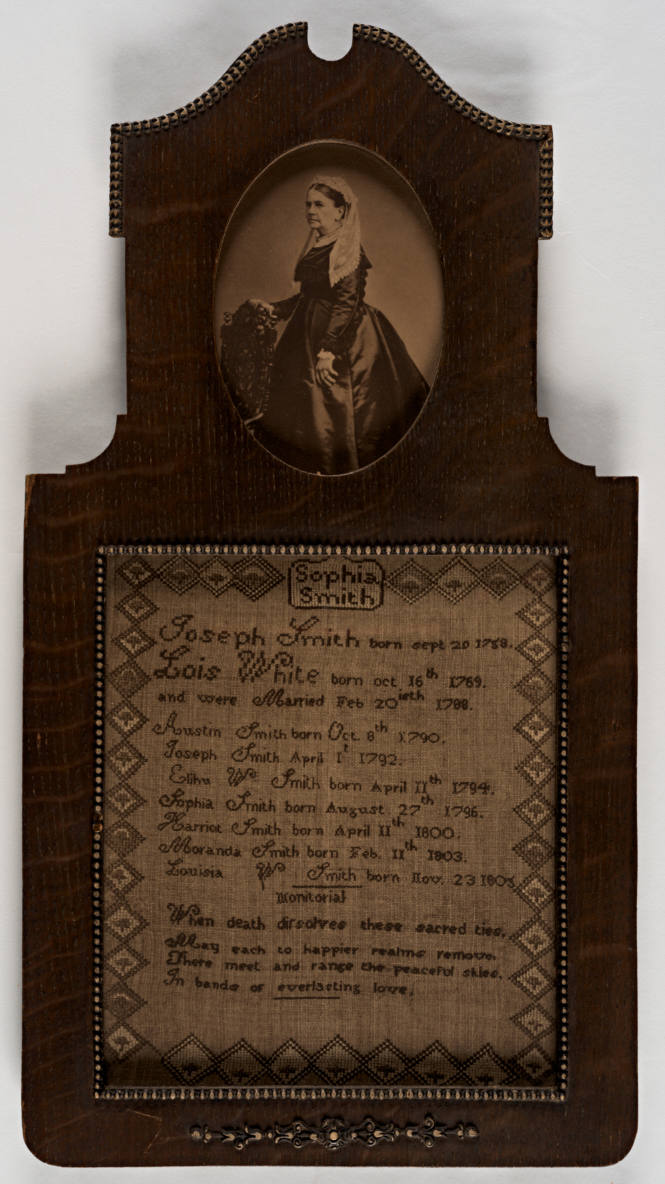 Sophia
Smith
Joseph Smith born sept 20 1768.
Lois White born oct 16th 1769.
and were Married Feb 20ieth 1788.
Austin Smith born Oct. 8th 1790.
Joseph Smith April 1t 1792.
Elihu W Smith born April 11th 1794.
Sophia Smith born August 27th 1796.
Harriot Smith born April 11th 1800.
Moranda Smith born Feb. 11th 1803.
Louisia W Smith born Nov. 23 1805
Monitorial
When death dirsolves these sacred ties,
May each to happier realms remove.
There meet and range the peaceful skies.
In bands of everlasting love.